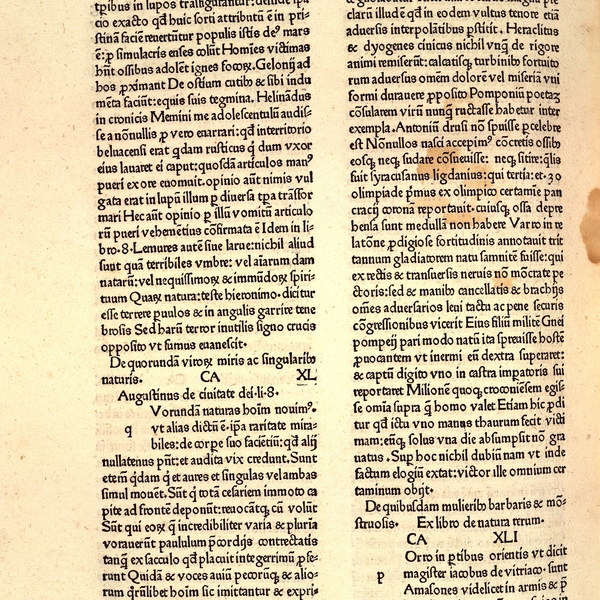 tpibus in lupos
cio exacto qd̃ huic sorti attributũ e in pri-
stinã faciẽ reuertũtur populis istis deꝰ mars
ẽ: ꝓ simulacris enses colũt Homĩes victimas
hñt ossibus adolẽt ignes focoꝝ. Gelonij ad
hos ꝓximant De ostium cutibꝰ & sibi indu
mẽta faciũt: equis suis tegmina. Helinãdus
in cronicis Memini me adolescentulũ audis-
se a nõnullis ꝓ vero enarrari: qd̃ ĩ territorio
beluacensi erat qdam rusticus q̃ dum vxor
eius lauaret ei caput: quosdã articulos manꝰ
pueri ex ore euomuit. opinio aũt nimis vul
gata erat in lupũ illum ꝑ diuersa tp̃a trãsfor
mari Hec aũt opinio ꝑ illũ vomitũ articulo
rũ pueri vehemẽtius cõfirmata ẽ Idem in li-
bro. 8. Lemures autẽ siue larue: nichil aliud
sunt quã terribiles vmbre: vel aĩarum dam
natarũ: vel nequissimoꝝ & immũdoꝝ spiri-
tuum Quaꝝ natura: teste hieronimo. dicitur
esse terrere puulos & in angulis garrire tene
brosis Sed harũ terror inutilis signo crucis
opposito vt fumus euanescit.
De quorundã viroꝝ miris ac singularibꝰ
naturis. CA XL
Augustinus de ciuitate dei. li. 8.
Vorundã naturas hoĩm nouimꝰ.
q vt alias dictũ ẽ. ip̃a raritate mira-
biles: de corpe suo faciẽtiũ: qd̃ alij
nullatenus pñt: et audita vix credunt. Sunt
etem̃ qdam q̃ et aures et singulas vel ambas
simul mouẽt. Sũt q̃ totã cesariem immoto ca
pite ad frontẽ deponũt: reuocãtqꝫ cũ volũt
Sũt qui eoꝝ q̃ incredibiliter varia & pluria
vorauerũt paululum p̃cordijs contrectatis
tanq̃ ex sacculo qd̃ placuit integerrimũ ꝓfe-
runt Quidã & voces auiũ pecorũqꝫ & alio-
rum qr̃ũlibet hoĩm sic imittantur & expri-
clarũ illudẽ qd̃ in eodem vultus tenore etiã
aduersis interpolatibus p̃stitit. Heraclitus
& dyogenes cinicus nichil vnq̃ de rigore
animi remiserũt: calcatisqꝫ turbinibꝰ fortuito
rum aduersus omẽm dolorẽ vel miseriã vni
formi durauere ꝓposito Pomponiũ poetaꝫ
cõsularem virũ nunq̃ ructasse habetur inter
exempla. Antoniũ drusi nõ spuisse p̃celebre
est Nõnullos nasci accepimꝰ cõcretis ossibꝰ
eosqꝫ neqꝫ sudare cõsueuisse: neqꝫ sitire: q̃lis
fuit syracusanus ligdanius: qui tertia: et. 30
olimpiade p̃mus ex olimpico certamĩe pan
cracij corona reportauit. cuiusqꝫ ossa depre
hensa sunt medullã non habere Varro in re
latõne ꝓdigiose fortitudinis annotauit trit
tannum gladiatorem natu samnitẽ fuisse: qui
ex rectis & transuersis neruis nõ mõ crate pe
ctoris: sed & manibꝰ cancellatis & brachijs
om̃es aduersarios leui tactu ac pene securis
cõgressionibus vicerit Eius filiũ militẽ Gnei
pompeij pari modo natũ ita spreuisse hostẽ
ꝓuocantem vt inermi eũ dextra superaret:
& captũ digito vno in castra impatoris sui
reportaret Milonẽ quoqꝫ croconiẽsem egis-
se om̃ia supra q̃ homo valet Etiam hic ꝓdi
tur qd̃ ictu vno manus thaurum fecit victi
mam: eũqꝫ solus vna die absumpsit nõ gra
natus. Sup hoc nichil dubiũ nam vt inde
factum elogiũ extat: victor ille omnium cer
taminum obijt.
De quibusdam mulieribꝰ barbaris & mõ-
struosis. Ex libro de natura rerum.
CA XLI
Orro in ptibus orientis vt dicit
p magister iacobus de vitriaco. sunt
Amasones videlicet in armis & p̃